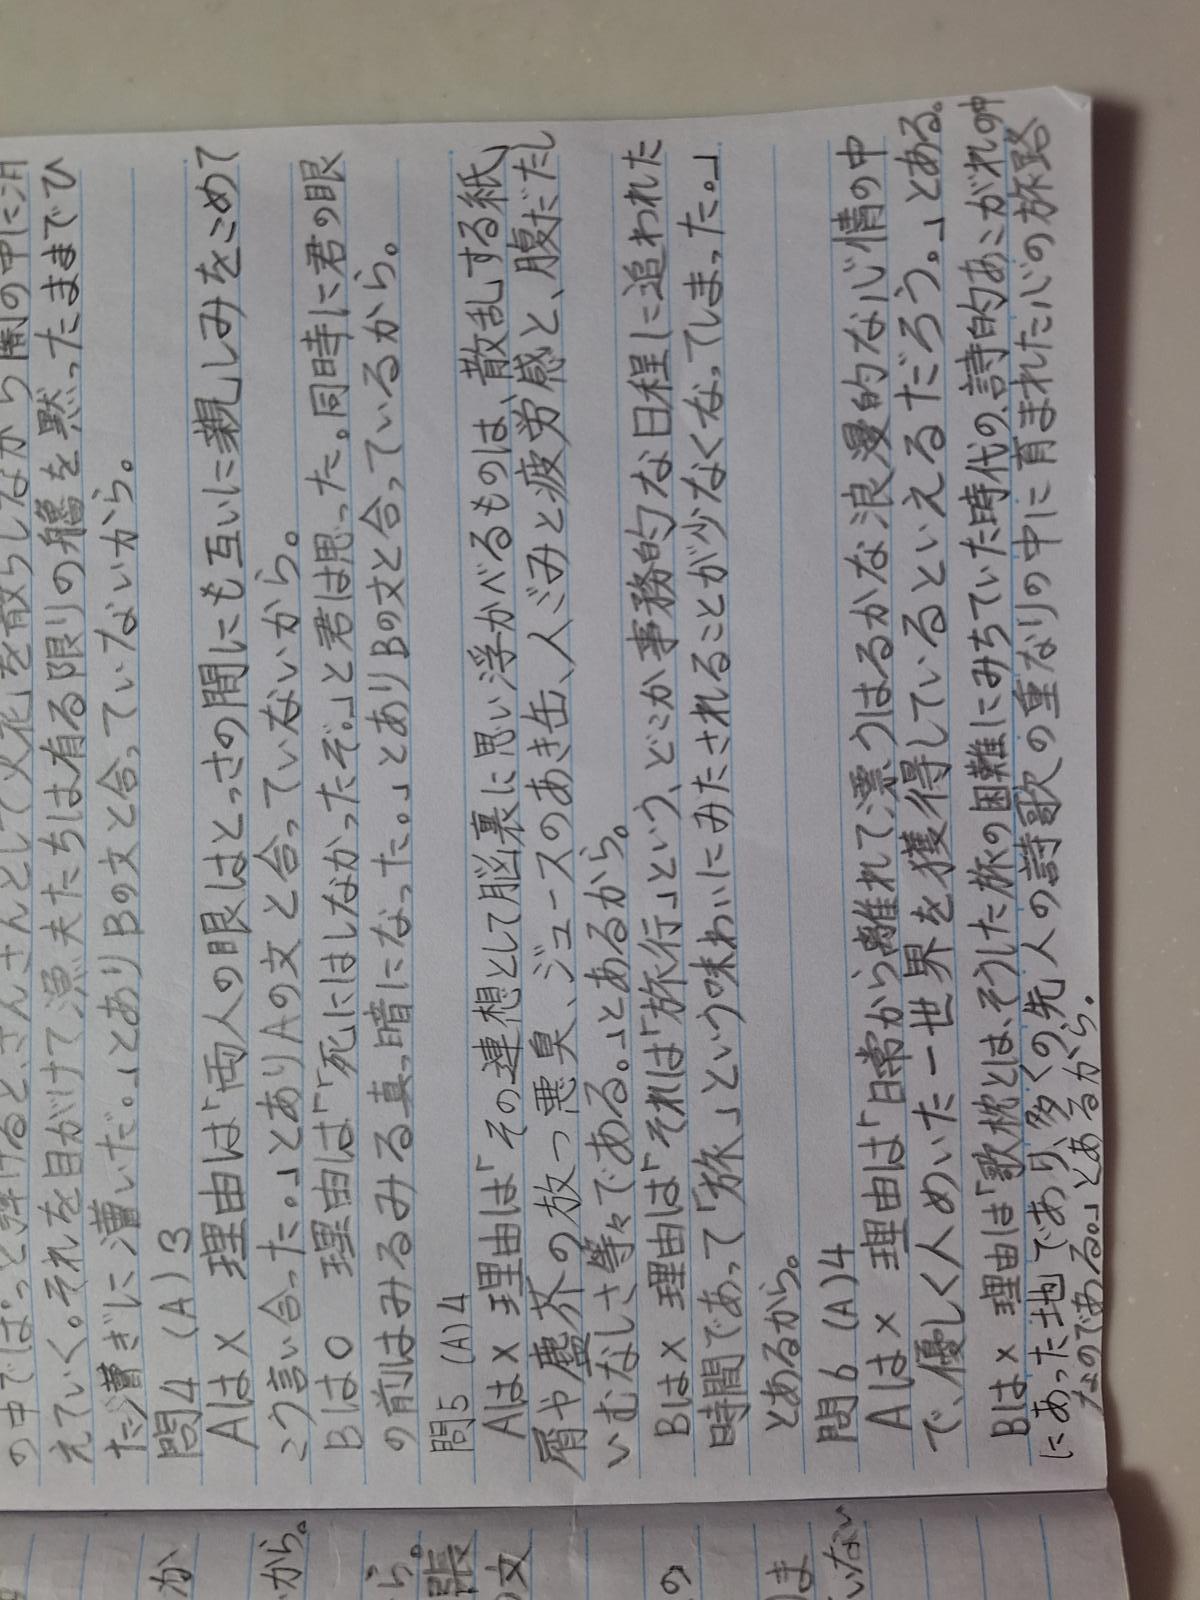 の中でぱっと弾けると、さんさんとして火花を散らしながら闇の中に消
えていく。それを目がけて漁夫たちは有る限りの艪を黙ったままでひ
た漕ぎに漕いだ。」とありBの文と合っていないから。
問4 (A) 3
Aは× 理由は「両人の眼はとっさの間にも互いに親しみをこめて
こう言い合った。」とありAの文と合っていないから。
Bは○ 理由は「「死にはしなかったぞ。」と君は思った。同時に君の眼
の前はみるみる真っ暗になった。」とありBの文と合っているから。
問5 (A) 4
Aは× 理由は「その連想として脳裏に思い浮かべるものは、散乱する紙
屑や塵芥の放つ悪臭、ジュースのあき缶、人ごみと疲労感と、腹だたし
いむなしさ等々である。」とあるから。
Bは× 理由は「それは「旅行」という、どこか事務的な日程に追われた
時間であって「旅」という味わいにみたされることが少なくなってしまった。」
とあるから。
問6 (A) 4
Aは× 理由は「日常から離れて漂うはるかな浪漫的な心情の中
で、優しく人めいた一世界を獲得しているといえるだろう。」とある。
Bは× 理由は「歌枕とは、そうした旅の困難にみちていた時代の、詩的あこがれの中
にあった地であり、多くの先人の詩歌の重なりの中に育まれた心の旅路
なのである。」とあるから。
か
から。
ら。
張
の文
の
ま
いない